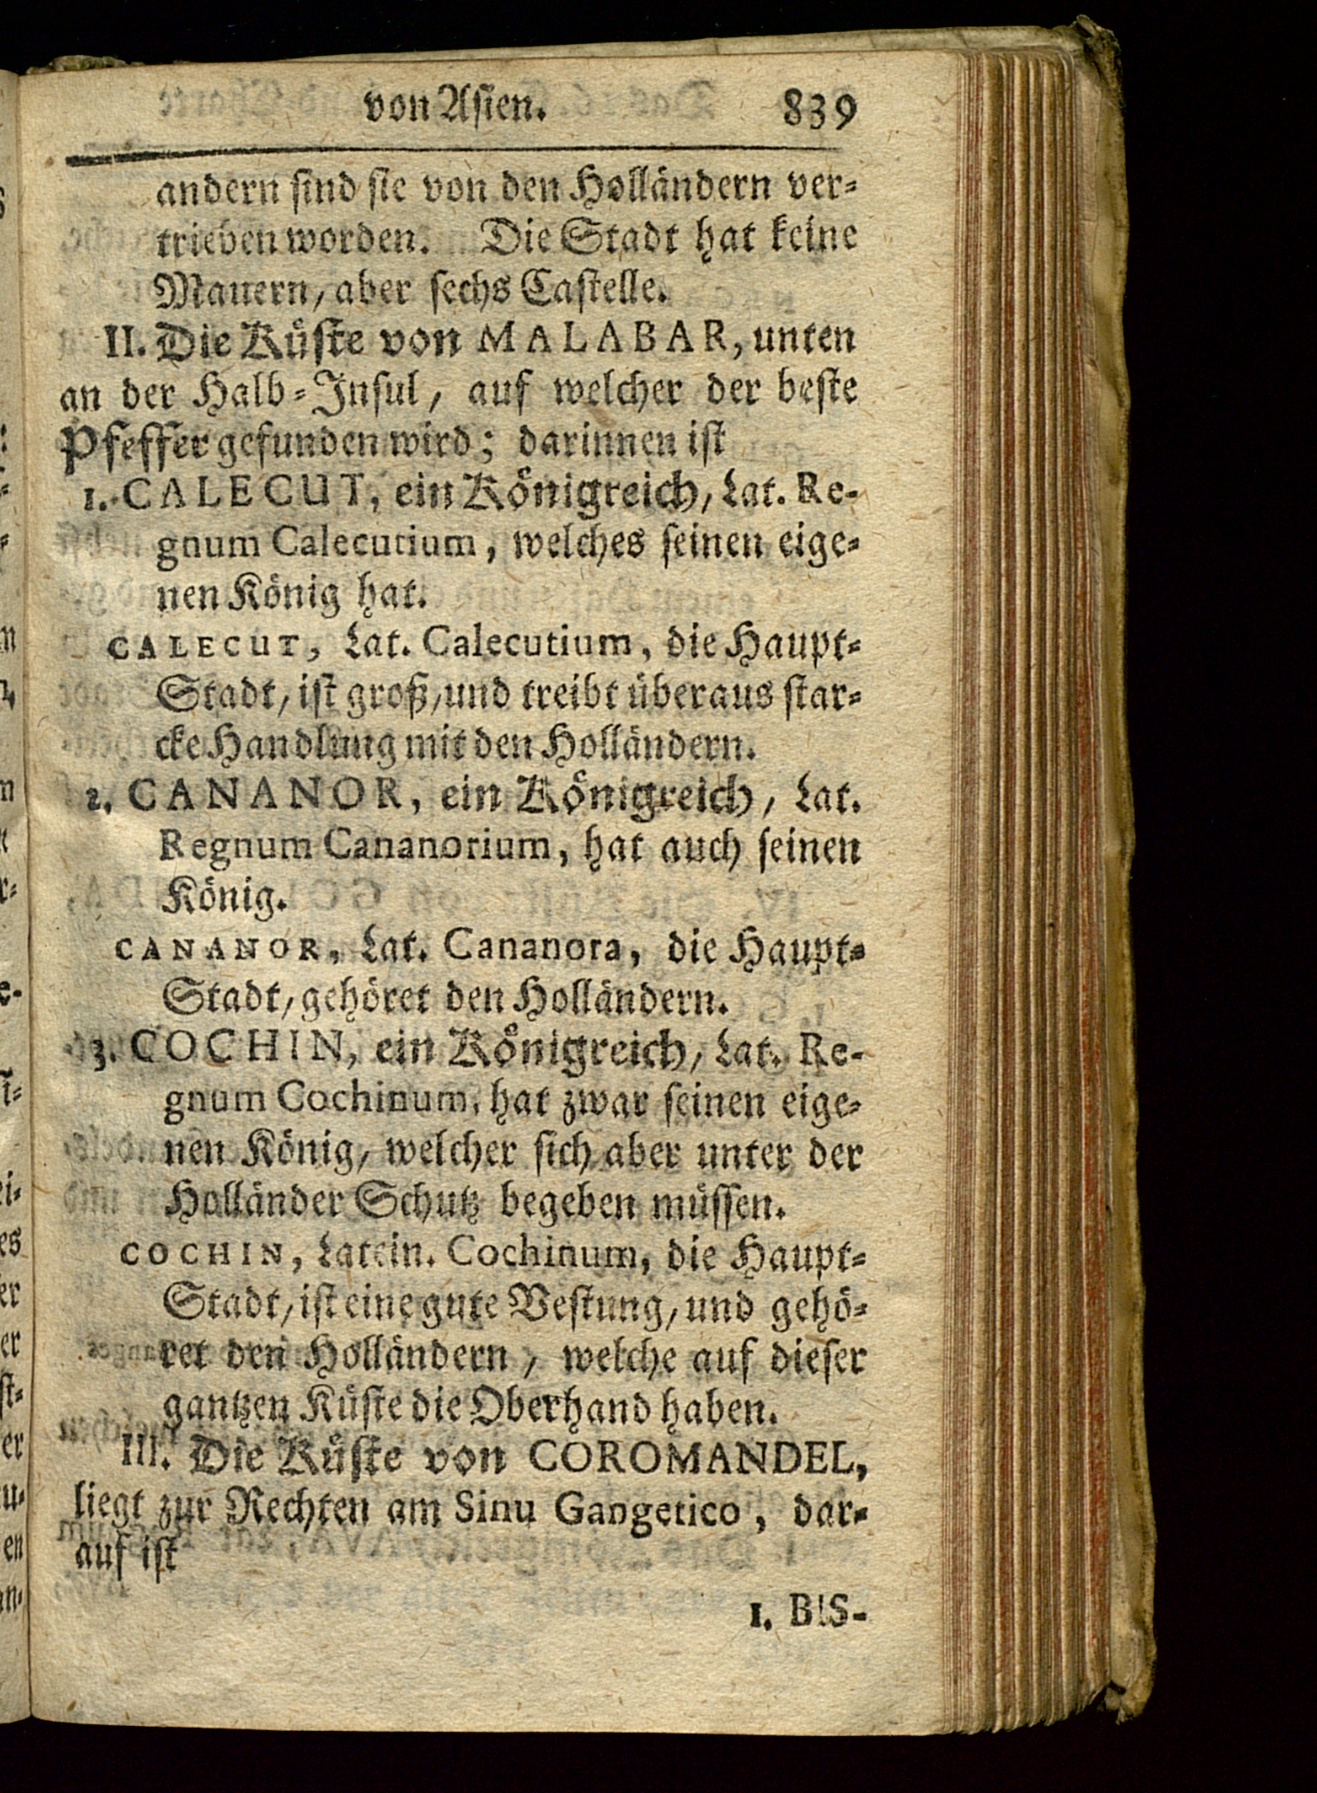 von Asien. 839
andern sind sie von den Holländern ver-
trieben worden. Die Stadt hat keine
Mauern, aber sechs Castelle.
II. Die Küste von MALABAR, unten
an der Halb-Insul, auf welcher der beste
Pfeffer gefunden wird; darinnen ist
1. CALECUT, ein Königreich, Lat. Re-
gnum Calecutium, welches seinen eige-
nen König hat.
CALECUT, Lat. Calecutium, die Haupt-
Stadt, ist groß, und treibt überaus star-
cke Handlung mit den Holländern.
2. CANANOR, ein Königreich, Lat.
Regnum Cananorium, hat auch seinen
König.
CANANOR, Lat. Cananora, die Haupt-
Stadt, gehöret den Holländern.
3. COCHIN, ein Königreich, Lat. Re-
gnum Cochinum, hat zwar seinen eige-
nen König, welcher sich aber unter der
Holländer Schutz begeben müssen.
COCHIN, Latein. Cochinum, die Haupt-
Stadt, ist eine gute Vestung, und gehö-
ret den Holländern, welche auf dieser
gantzen Küste die Oberhand haben.
III. Die Küste von COROMANDEL,
liegt zur Rechten am Sinu Gangetico, dar-
auf ist
1. BIS-